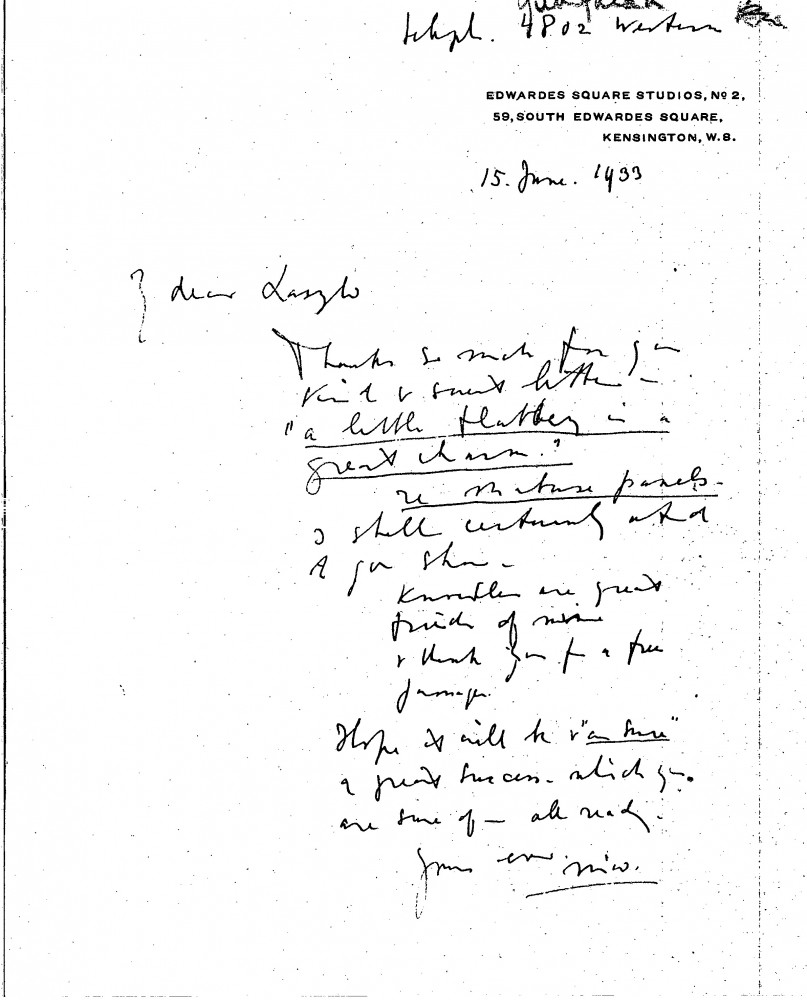 teleph. 4802 Western
EDWARDES SQUARE STUDIOS, No 2,
59, SOUTH EDWARDES SQUARE,
KENSINGTON, W.8.
15. June. 1933
dear Laszlo
Thanks so much for your
kind & sweet letter –
"a little flattery is a
great charm."
re Mature panels.
I shall certainly attend
to your show –
Knoedler are great
friends of mine
& thank you for a free
passage.
Hope it will be & "am sure"
a great success – which you
are sure of – all ready.
Yours ever.